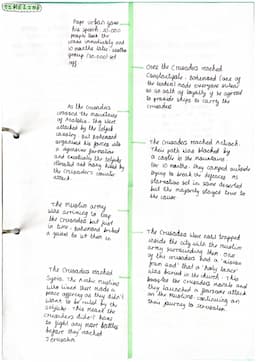 TIMELINE
Pope Urban gave
his speech. 10,000
people took the
cross immediately and
10 months later another
group (30,000) set
off
Once the Crusaders reached
Constantinople. Bohemond (one of
the leaders) made everyone
an oath of loyalty if he agreed
to provide ships to carry the
crusaders
As the Crusaders
crossed the mountains
of Anatolia. They were
attacked by the Seljuk
cavalry. But Bohemond
organised his forces into
a defensive formation
and eventually the Seljuks
retreated and many killed by
the Crusaders counter
attack.
The Crusaders reached Antioch.
Their path was blocked by
a castle in the mountains
for 10 months. They camped outside
trying to break the defences. As
starvation set in some deserted
but the majority stayed true to
the cause
The Muslim army
was arriving to say
the Crusaders but just
in time. Bohemond bribed
a guard to let them in
The Crusaders were now trapped
inside the city with the Muslim
army surrounding them. One
of the crusaders had a 'vision
from God' that a 'holy lance'
was buried in the church. This
boosted the crusaders morale and
they launched a fearsome attack
on the Muslims, continuing on
their journey to Jerusalem.
The Crusaders reached
Syria. The Arabic Muslims
who lived there made a
peace offering as they didn't
want to be ruled by the
Seljuks. This meant the
Crusaders didn't have
to fight any more battles
before they reached
Jerusalem